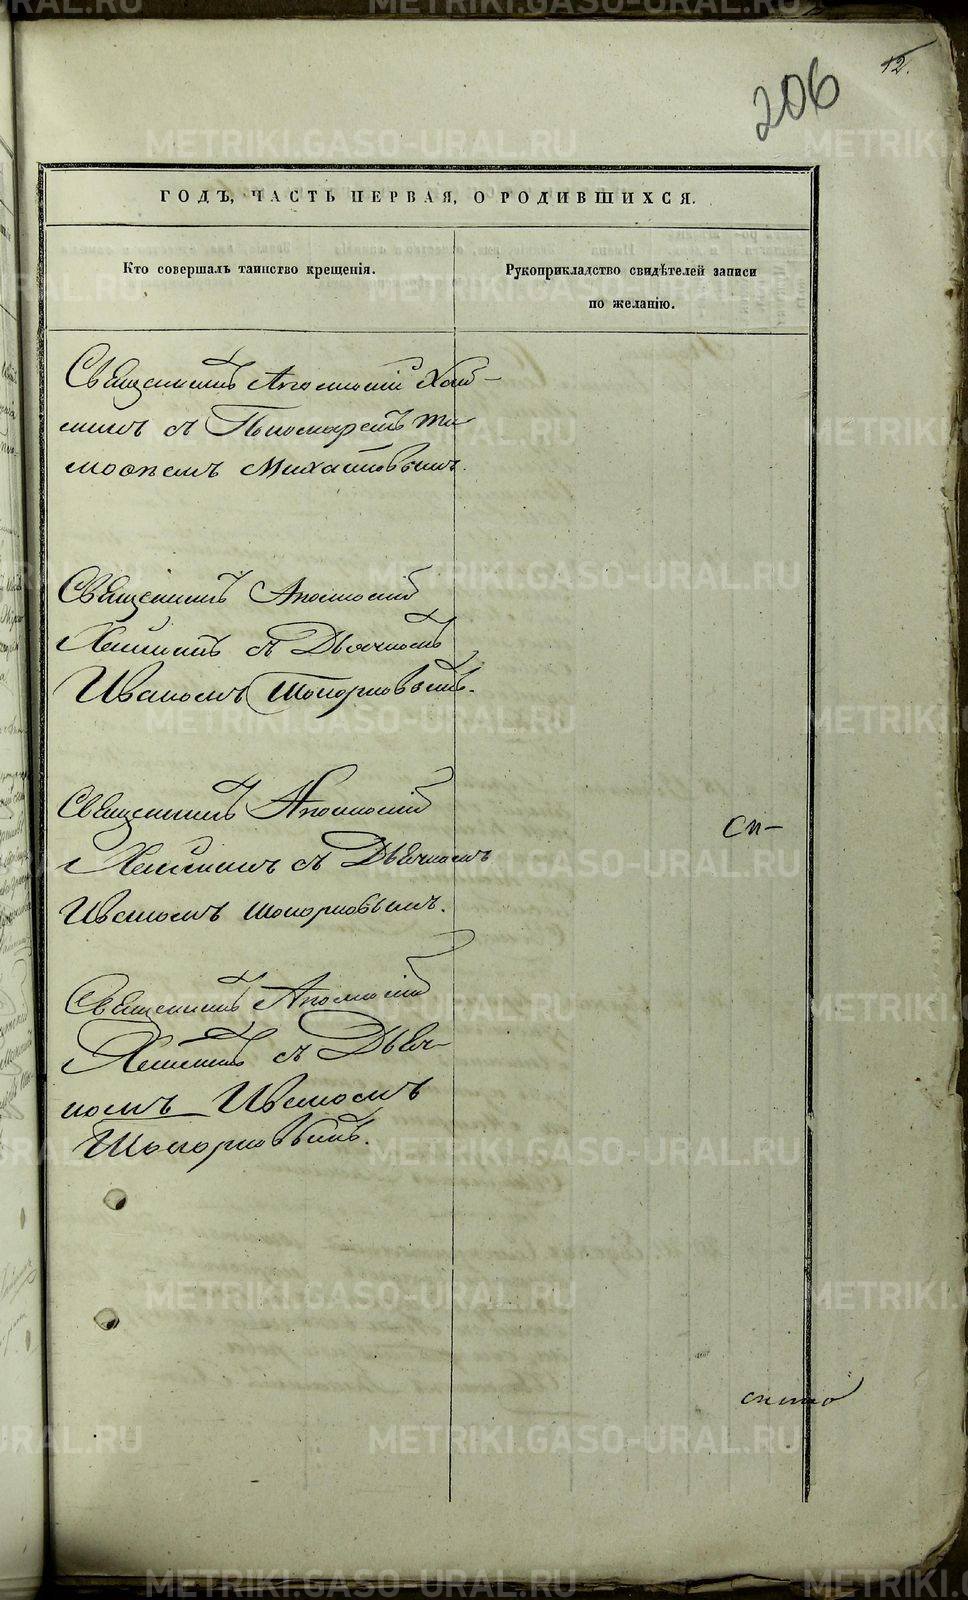 12.
206
ГОДЪ, ЧАСТЬ ПЕРВАЯ, О РОДИВШИХСЯ.
Кто совершалъ таинство крещенія.
Рукоприкладство свидѣтелей записи
по желанію.
Священникъ Аполлоній
съ Пономаремъ Ти
моѳеемъ Михайловымъ.
Священникъ Аполлоній
съ Дьячкомъ
Иваномъ Топорковымъ.
Священникъ Аполлоній
съ Дьячкомъ
Иваномъ Топорковымъ.
Священникъ Аполлоній
съ Дьяч-
комъ Иваномъ
Топорковымъ.
METRIKI.GASO-URAL.RU